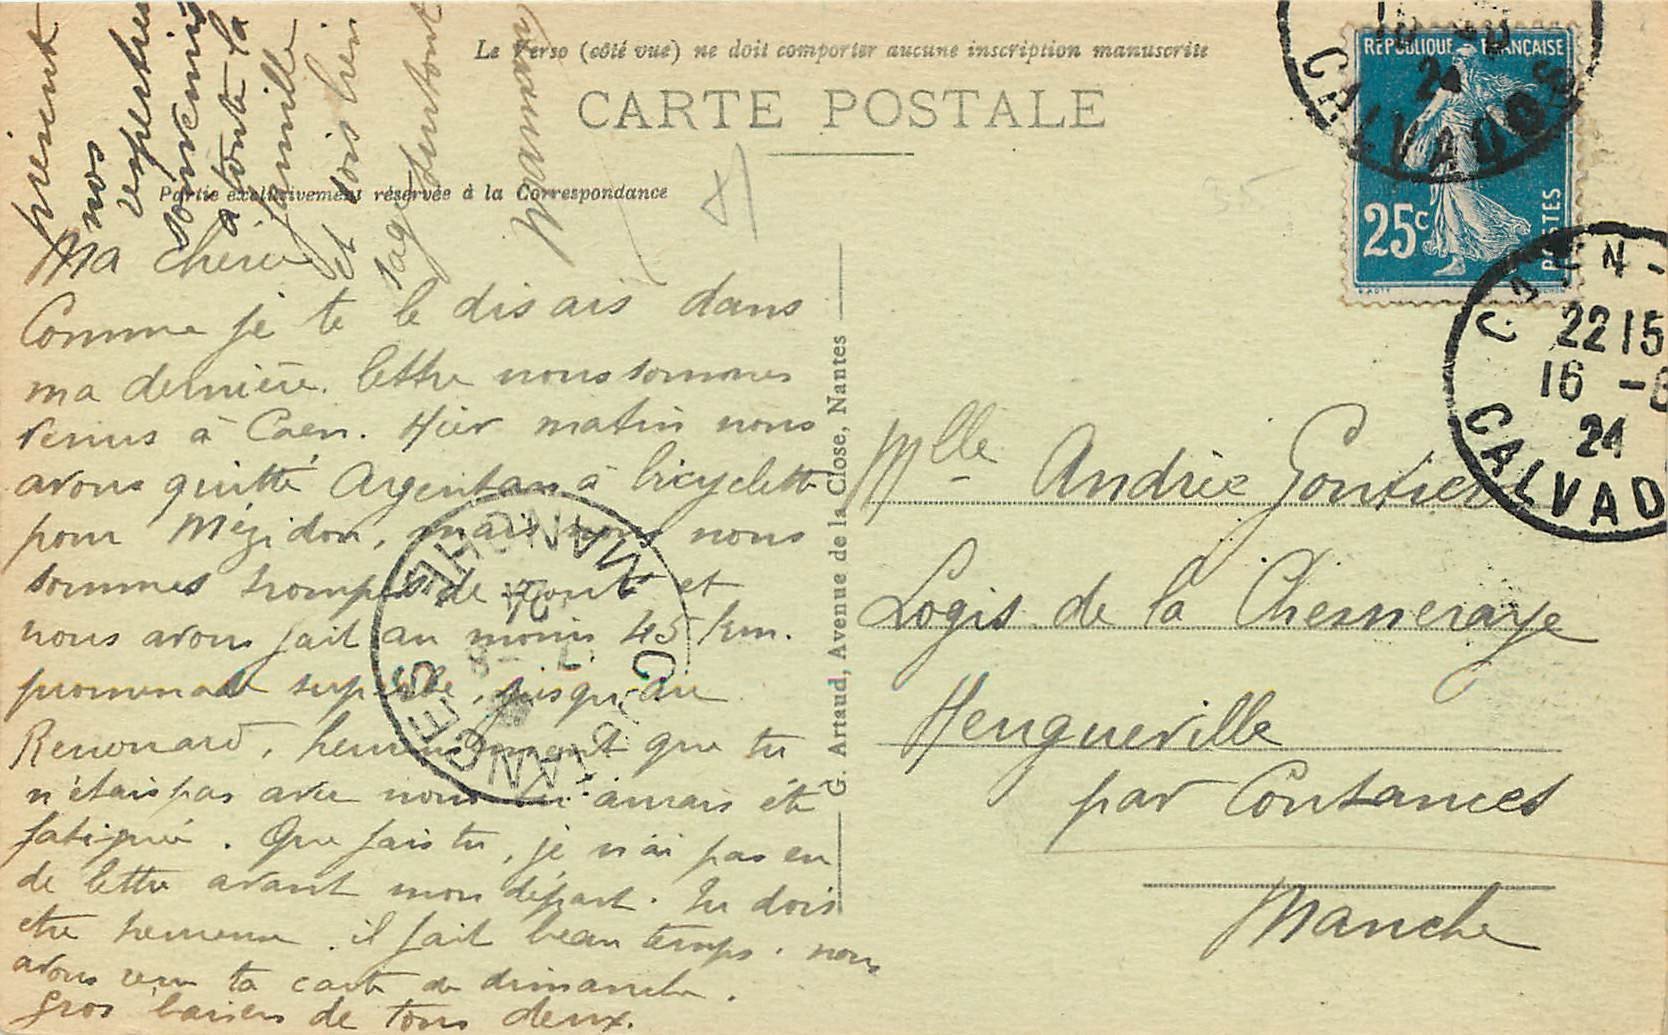 Le Verso (côté vue) ne doit comporter aucune inscription manuscrite
CARTE POSTALE
Partie exclusivement réservée à la Correspondance
Ma chérie
Comme je te le disais dans
ma dernière lettre nous sommes
venus à Caen. Hier matin nous
avons quitté Argentan à bicyclette
pour Mézidon, mais nous nous
sommes trompés de route et
nous avons fait au moins 45 km.
promenade superbe, jusqu'au
Renouard, heureusement que tu
n'étais pas avec nous tu aurais été
fatiguée. Que fais tu, je n'ai pas eu
de lettre avant mon départ. Tu dois
etre heureuse il fait beau temps. nous
avons reçu ta carte de dimanche.
Gros baisers de tous deux.
présent
nos
respectueux
souvenirs
à toute la
famille
et sois bien
sage surtout
Maman
G. Artaud, Avenue de la Close, Nantes
RÉPUBLIQUE FRANÇAISE
25c
POSTES
24
CALVADOS
CAEN -
22 15
16 - 6
24
CALVAD
MANCHE
24
COUTANCES
Mlle Andrée Gontier
Logis de la Chesneraye
Heugueville
par Coutances
Manche